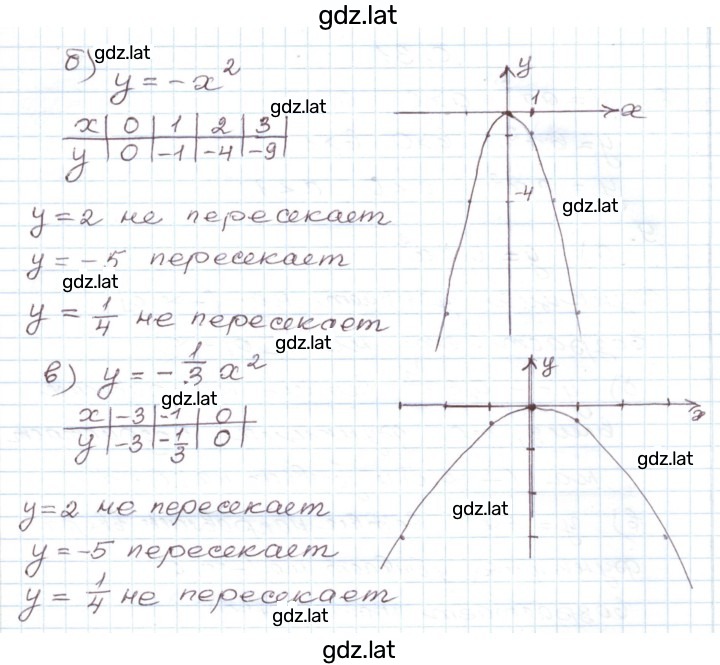 gdz.lat
б) gdz.lat
y = -x²
gdz.lat
x | 0 | 1 | 2 | 3
y | 0 | -1 | -4 | -9
y
1
x
-4
gdz.lat
y = 2 не пересекает
y = -5 пересекает
gdz.lat
y = 1/4 не пересекает
gdz.lat
в) y = -1/3 x²
gdz.lat
x | -3 | -1 | 0
y | -3 | -1/3 | 0
y
x
gdz.lat
gdz.lat
y = 2 не пересекает
y = -5 пересекает
y = 1/4 не пересекает
gdz.lat
gdz.lat